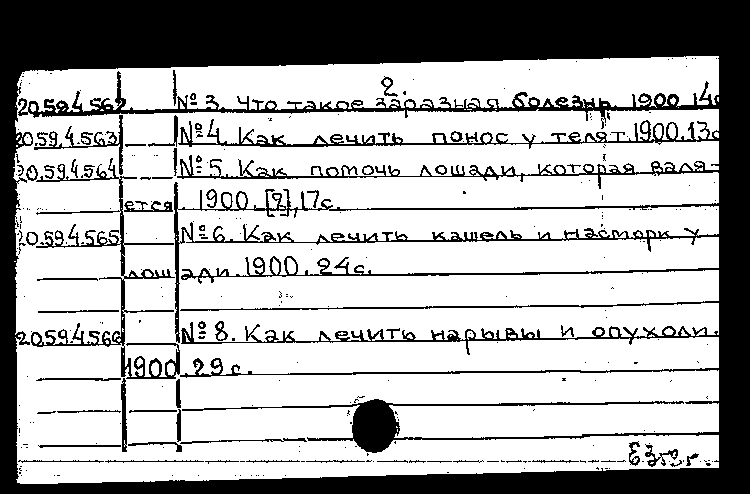 2.
20.59.4.562. № 3. Что такое заразная болезнь. 1900. 14с
20.59.4.563 № 4. Как лечить понос у телят. 1900. 13с
20.59.4.564 № 5. Как помочь лошади, которая валя-
ется. 1900. [2], 17с.
20.59.4.565 № 6. Как лечить кашель и насморк у
лошади. 1900. 24с.
20.59.4.566 № 8. Как лечить нарывы и опухоли.
1900. 29с.